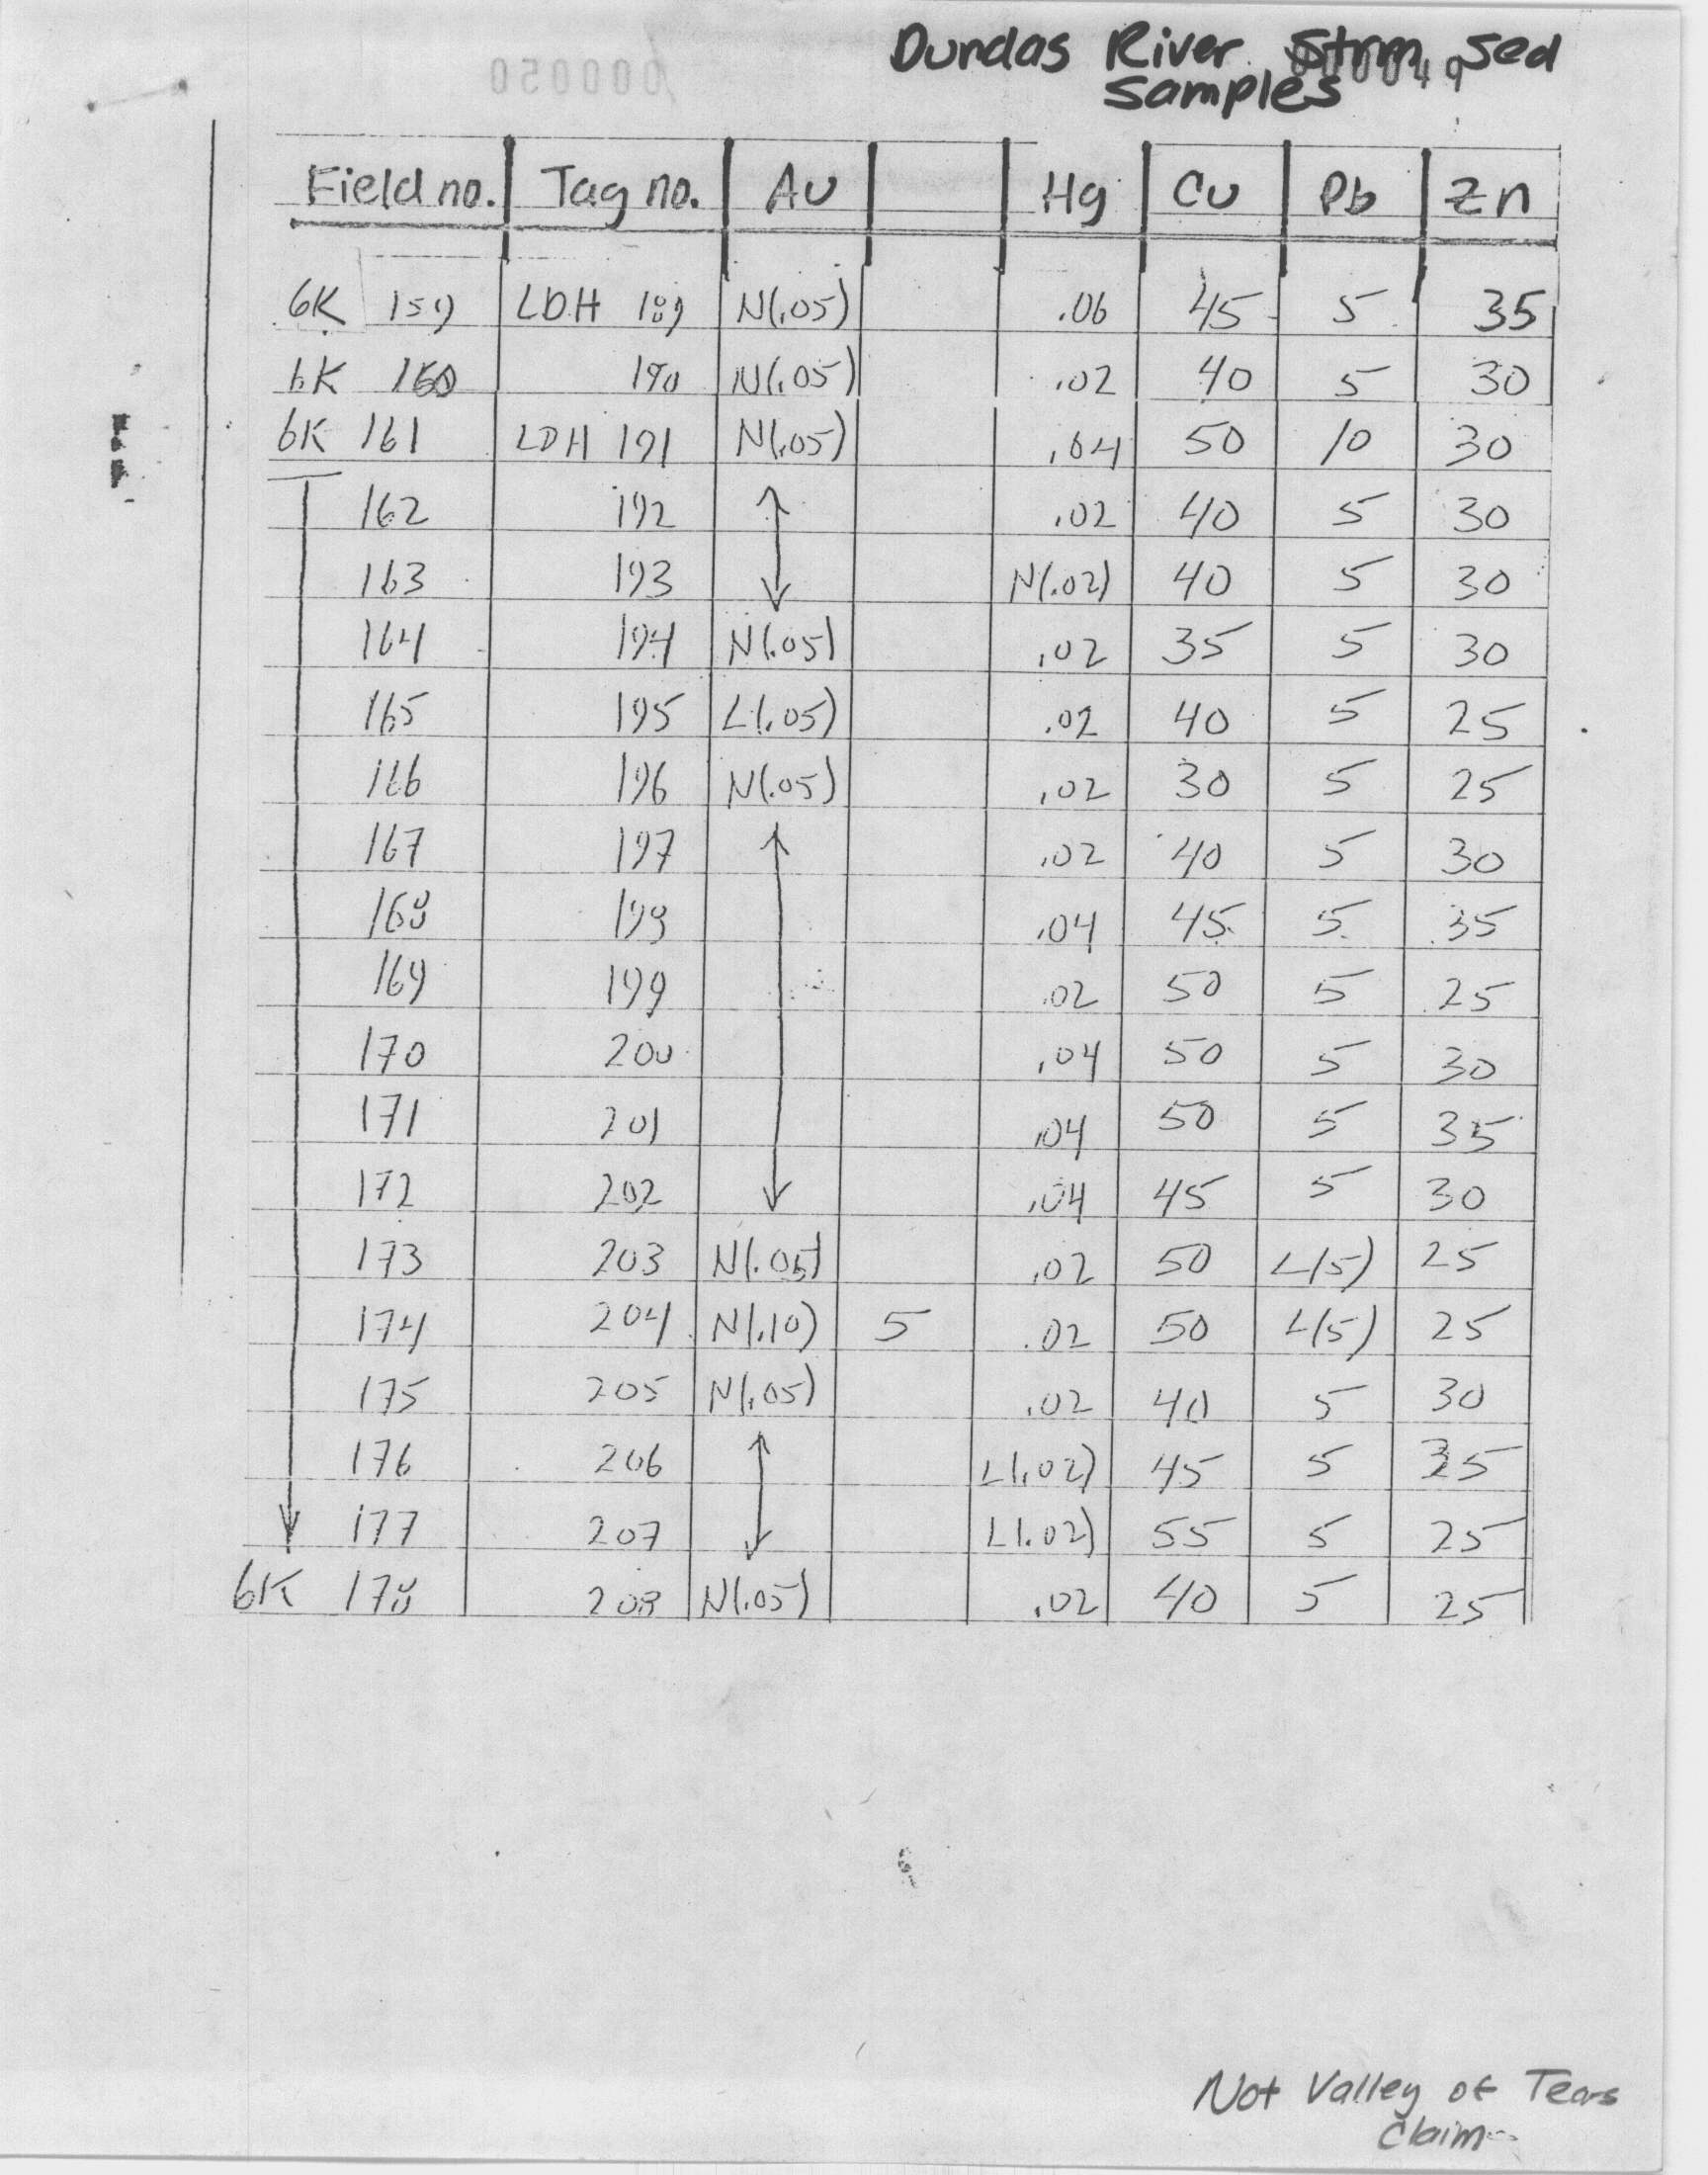 Dundas River Strm Sed
Samples
000050
Field no. Tag no. Au Hg Cu Pb Zn
6K 159 LDH 189 N(.05) .06 45 5 35
6K 160 190 N(.05) .02 40 5 30
6K 161 LDH 191 N(.05) .04 50 10 30
162 192 .02 40 5 30
163 193 N(.02) 40 5 30
164 194 N(.05) .02 35 5 30
165 195 L(.05) .02 40 5 25
166 196 N(.05) .02 30 5 25
167 197 .02 40 5 30
168 198 .04 45 5 35
169 199 .02 50 5 25
170 200 .04 50 5 30
171 201 .04 50 5 35
172 202 .04 45 5 30
173 203 N(.05) .02 50 L(5) 25
174 204 N(.10) 5 .02 50 L(5) 25
175 205 N(.05) .02 40 5 30
176 206 L(.02) 45 5 35
177 207 L(.02) 55 5 25
6K 178 208 N(.05) .02 40 5 25
Not Valley of Tears
Claim